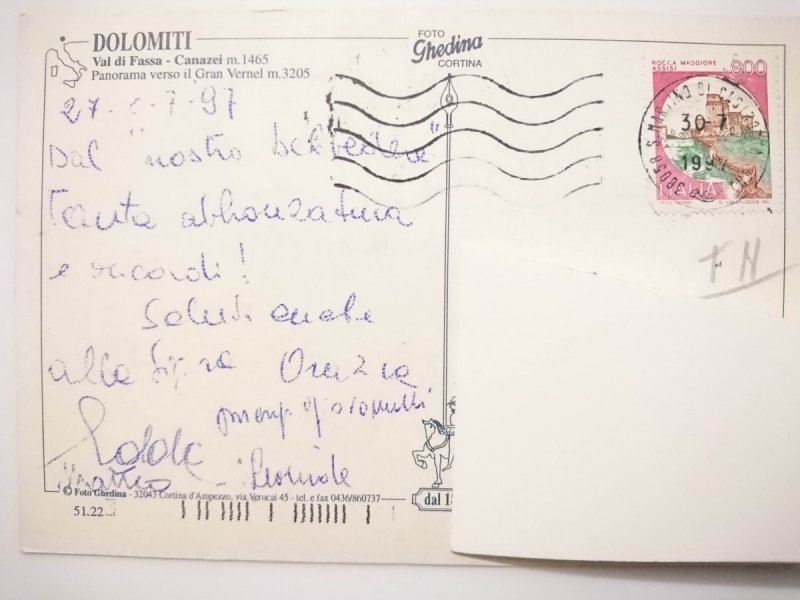 DOLOMITI
Val di Fassa - Canazei m.1465
Panorama verso il Gran Vernel m.3205
FOTO
Ghedina
CORTINA
ROCCA MAGGIORE
ASSISI
800
30-7
38058 S. MARTINO DI
ITALIA
27 - 7 - 97
Dal "nostro belvedere"
Tanta abbronzatura
e ricordi!
Saluti anche
alla Sig.ra
Matteo -
TN
© Foto Ghedina - 32043 Cortina d'Ampezzo, via Verocai 45 - tel. e fax 0436/860737
51.22
dal 18